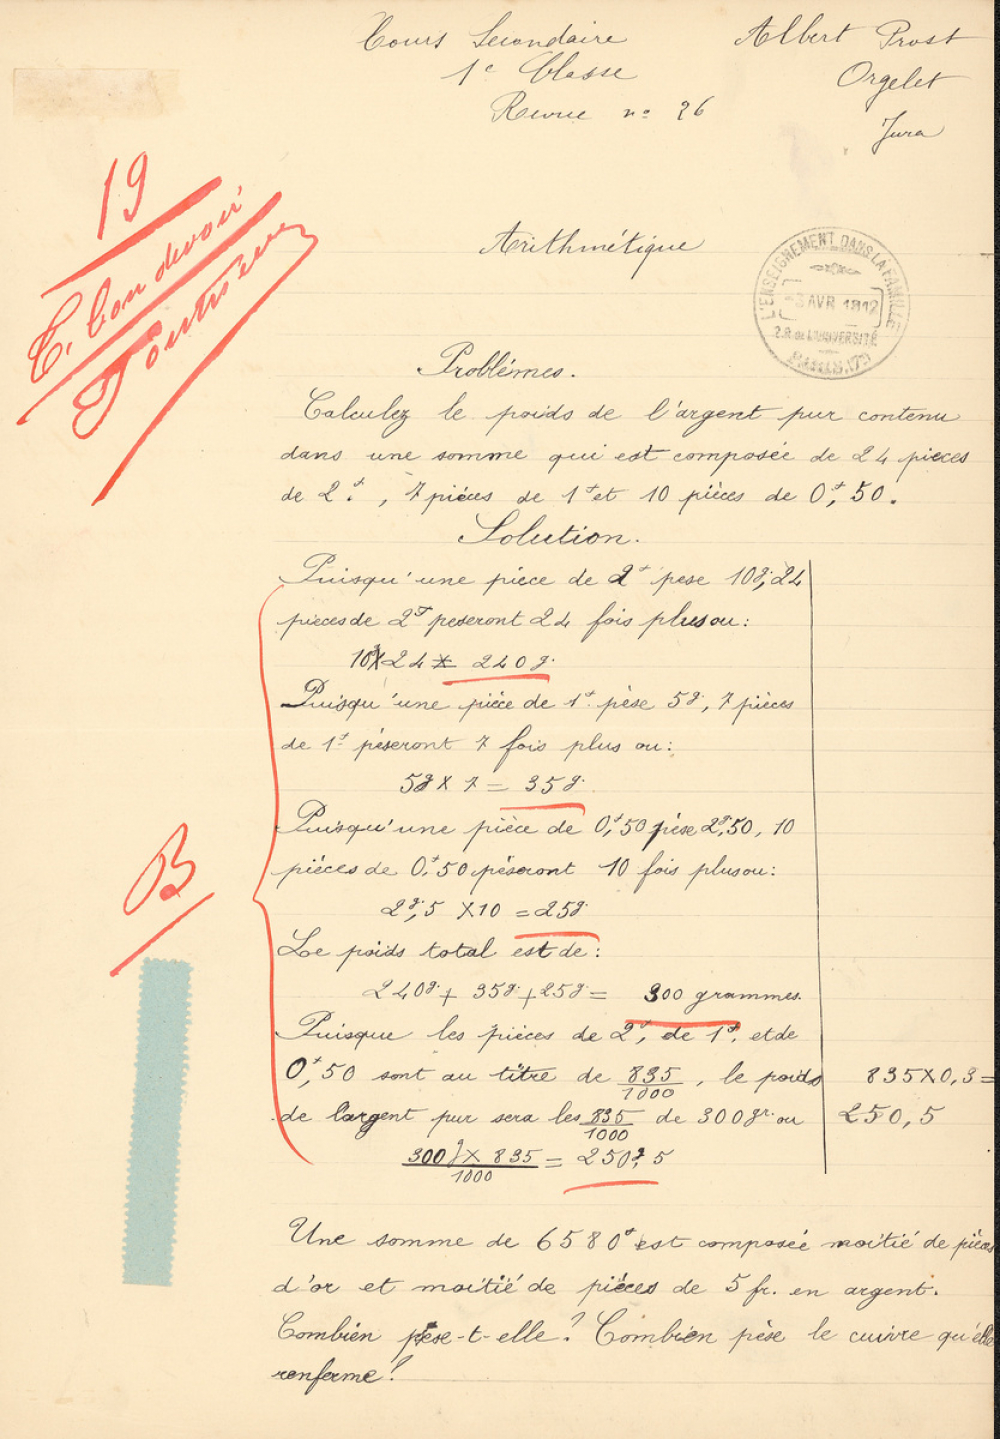 Cours Secondaire
1e Classe
Revue no 26
Albert Prost
Orgelet
Jura
19
T. bon devoir
Arithmétique
L'ENSEIGNEMENT DANS LA FAMILLE
3 AVR 1912
2.R de L'UNIVERSITÉ
PARIS
Problémes.
Calculez le poids de l'argent pur contenu
dans une somme qui est composée de 24 pieces
de 2f., 7 piéces de 1f et 10 pièces de 0f,50.
Solution.
Puisqu'une pièce de 2f pese 10g, 24
pieces de 2f peseront 24 fois plus ou:
10g X 24 = 240g.
Puisqu'une pièce de 1f. pèse 5g, 7 pièces
de 1f péseront 7 fois plus ou:
5g X 7 = 35g.
Puisqu'une pièce de 0f,50 pèse 2g,50, 10
piéces de 0f,50 péseront 10 fois plus ou:
2g,5 X 10 = 25g.
Le poids total est de:
240g + 35g + 25g = 300 grammes.
Puisque les pièces de 2f, de 1f, et de
0f,50 sont au titre de 835/1000, le poids
de l'argent pur sera les 835/1000 de 300gr. ou
300g X 835/1000 = 250g,5
835X0,3=
250,5
B
Une somme de 6580f est composée moitié de pièces
d'or et moitié de piéces de 5 fr. en argent.
Combien pèse-t-elle? Combien pèse le cuivre qu'elle
renferme?